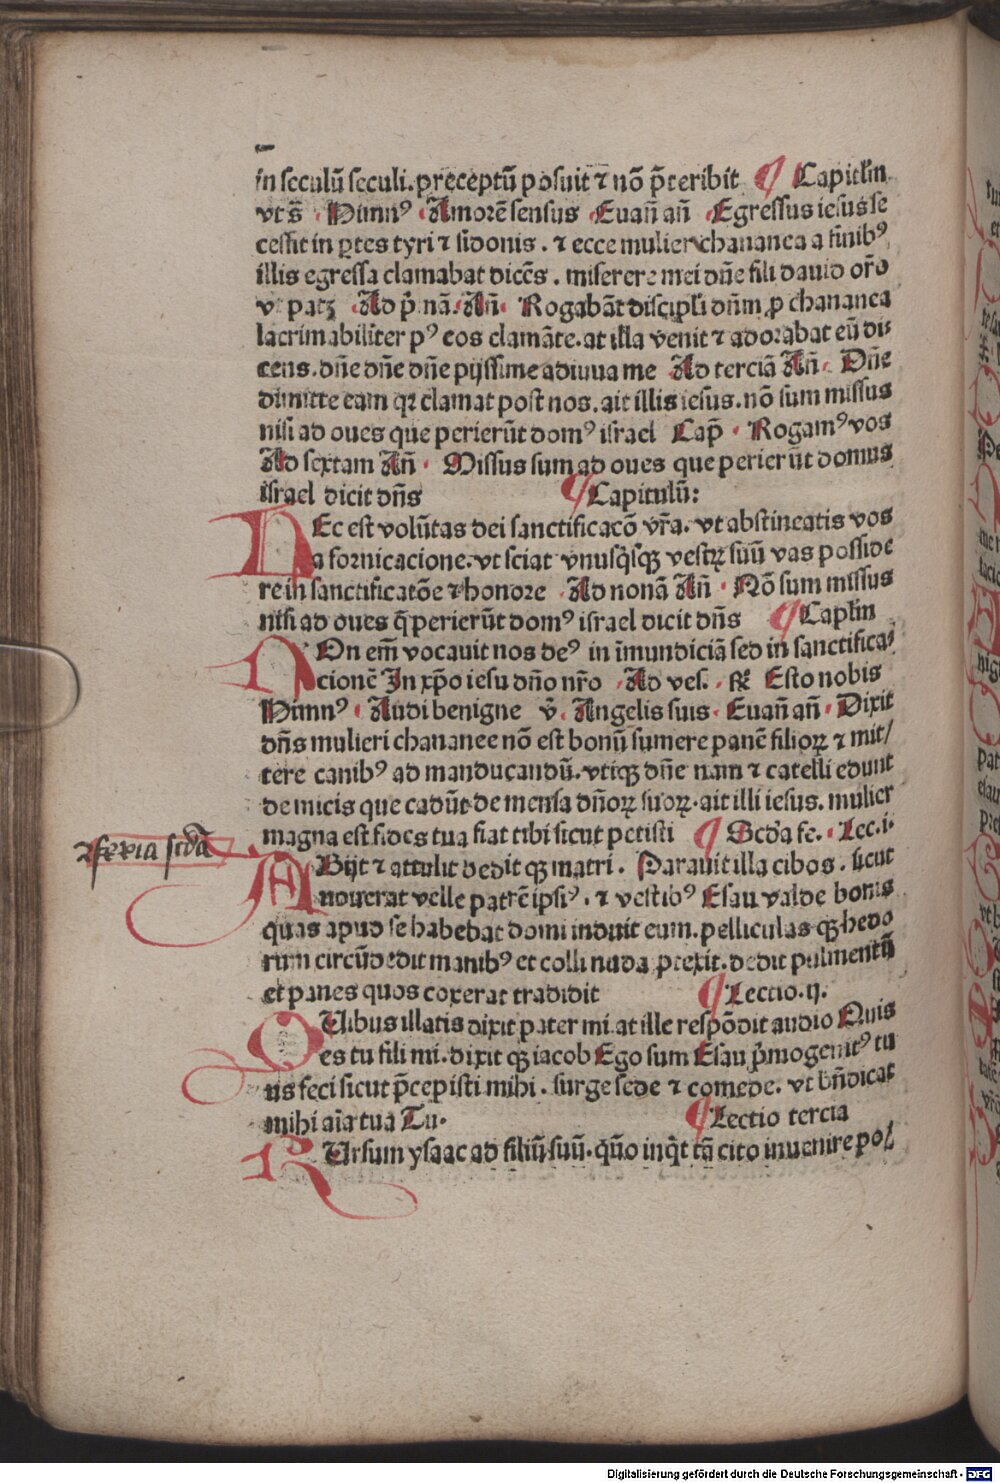 in seculū seculi. preceptū posuit ⁊ nō p̄teribit ¶ Capitl'm
vt s̄ Himnꝰ Amorē sensus Euan̄ an̄ Egressus iesus se
cessit in ꝑtes tyri ⁊ sidonis . ⁊ ecce mulier chananea a finibꝰ
illis egressa clamabat dicēs . miserere mei dn̄e fili dauid or̄o
v patꝫ Ad p̄ nā. An̄ Rogabāt discipl'i dn̄m ꝓ chananea
lacrimabiliter pꝰ eos clamāte. at illa venit ⁊ adorabat eū di⸗
cens. dn̄e dn̄e dn̄e pijssime adiuua me Ad terciā An̄ Dn̄e
dimitte eam qꝛ clamat post nos. ait illis iesus. nō sum missus
nisi ad oues que perierūt domꝰ israel Cap̄ Rogamꝰ vos
Ad sextam An̄ Missus sum ad oues que perierūt domus
israel dicit dn̄s ¶ Capitulū:
HEc est volūtas dei sanctificacō vr̄a. vt abstineatis vos
a fornicacione. vt sciat vnusq̄sqꝫ vestꝝ suū vas posside
re in sanctificatōe ⁊ honore Ad nonā An̄ Nō sum missus
nisi ad oues q̄ perierūt domꝰ israel dicit dn̄s ¶ Capl'm
NOn em̄ vocauit nos deꝰ in īmundiciā sed in sanctifica⸗
cionē In xp̄o iesu dn̄o nr̄o Ad ves. ℟ Esto nobis
Himnꝰ Audi benigne v̄. Angelis suis Euan̄ an̄ Dixit
dn̄s mulieri chananee nō est bonū sumere panē filioꝝ ⁊ mit/
tere canibꝰ ad manducandū. vtiqꝫ dn̄e nam ⁊ catelli edunt
de micis que cadūt de mensa dn̄oꝝ suoꝝ. ait illi iesus. mulier
magna est fides tua fiat tibi sicut petisti ¶ Scd'a fe. Lec. i.
feria scdā
ABijt ⁊ attulit dedit qꝫ matri . Parauit illa cibos . sicut
nouerat velle patrē ipsiꝰ. ⁊ vestibꝰ Esau valde bonis
quas apud se habebat domi induit eum. pelliculas qꝫ hedo
rum circūdedit manibꝰ et colli nuda ꝓtexit. dedit pulmentū
et panes quos coxerat tradidit ¶ Lectio. ij.
QUibus illatis dixit pater mi. at ille respōdit audio Quis
es tu fili mi. dixit qꝫ iacob Ego sum Esau p̄mogenitꝰ tu
us feci sicut p̄cepisti mihi . surge sede ⁊ comede. vt bn̄dicat
mihi aīa tua Tu. ¶ Lectio tercia
RUrsum ysaac ad filiū suū. quō inq̄t tā cito inuenire po/
Digitalisierung gefördert durch die Deutsche Forschungsgemeinschaft - DFG